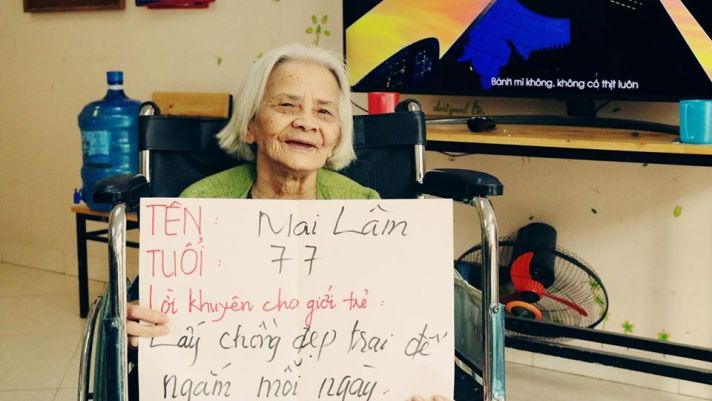 Bánh mì không, không có thịt luôn
TÊN : Mai Lâm
TUỔI : 77
Lời khuyên cho giới trẻ :
Lấy chồng đẹp trai để
ngắm mỗi ngày.